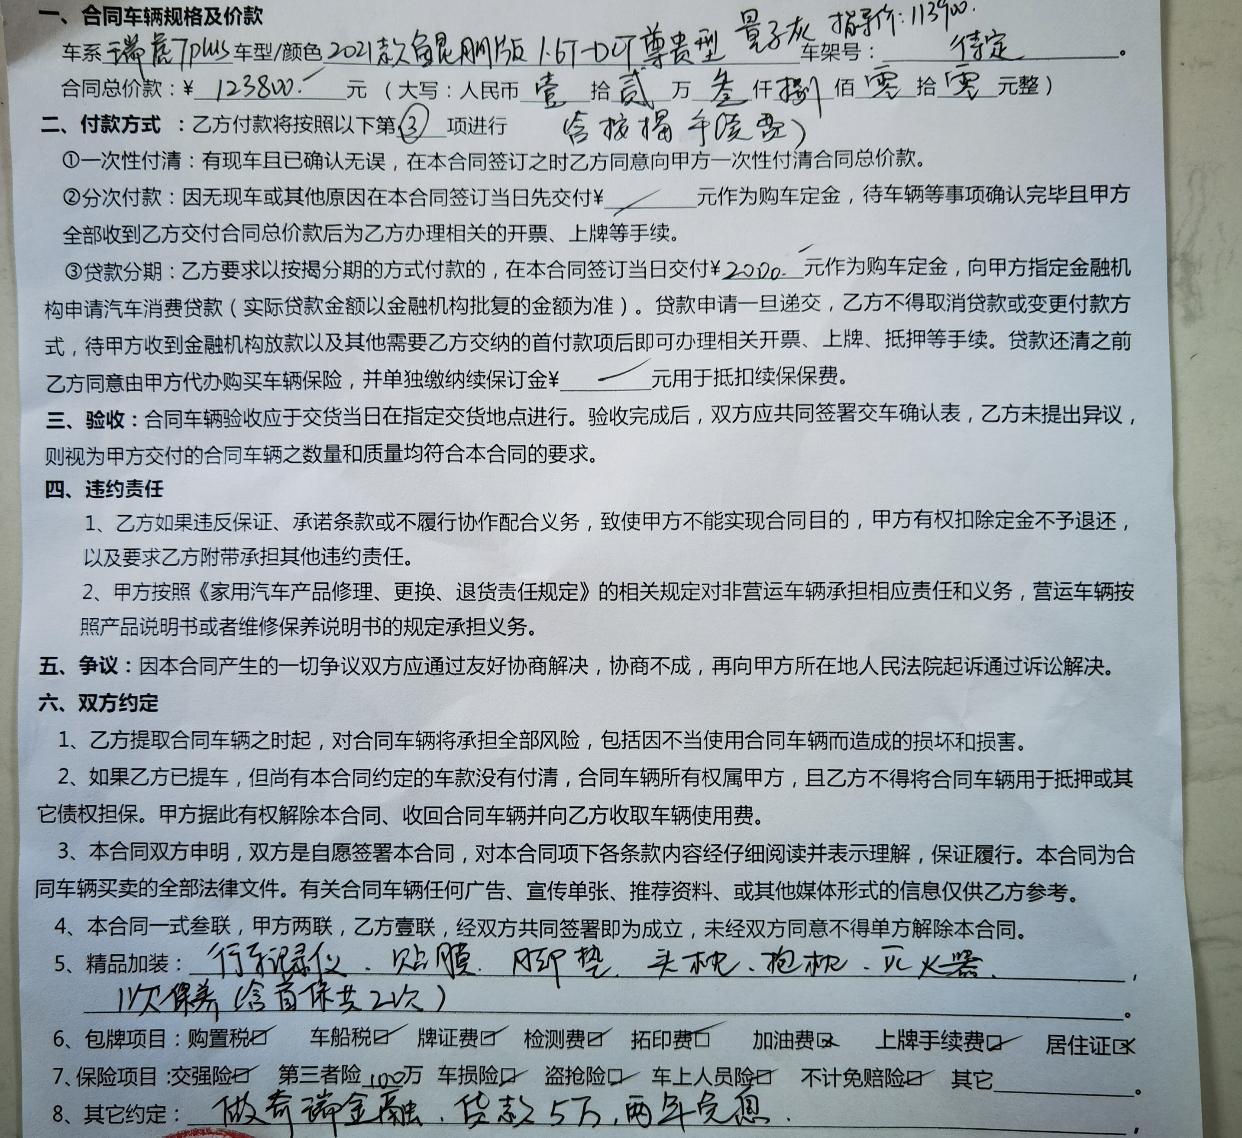 一、合同车辆规格及价款
指导价:113900.
车系瑞虎7plus车型/颜色2021款鲲鹏版 1.6T-DCT尊贵型 量子灰 车架号：待定。
合同总价款：¥123800.元（大写：人民币壹拾贰万叁仟捌佰零拾零元整）
二、付款方式 ：乙方付款将按照以下第③项进行 含按揭手续费)
①一次性付清：有现车且已确认无误，在本合同签订之时乙方同意向甲方一次性付清合同总价款。
②分次付款：因无现车或其他原因在本合同签订当日先交付¥元作为购车定金，待车辆等事项确认完毕且甲方
全部收到乙方交付合同总价款后为乙方办理相关的开票、上牌等手续。
③贷款分期：乙方要求以按揭分期的方式付款的，在本合同签订当日交付¥2000.元作为购车定金，向甲方指定金融机
构申请汽车消费贷款（实际贷款金额以金融机构批复的金额为准）。贷款申请一旦递交，乙方不得取消贷款或变更付款方
式，待甲方收到金融机构放款以及其他需要乙方交纳的首付款项后即可办理相关开票、上牌、抵押等手续。贷款还清之前
乙方同意由甲方代办购买车辆保险，并单独缴纳续保订金¥元用于抵扣续保保费。
三、验收：合同车辆验收应于交货当日在指定交货地点进行。验收完成后，双方应共同签署交车确认表，乙方未提出异议，
则视为甲方交付的合同车辆之数量和质量均符合本合同的要求。
四、违约责任
1、乙方如果违反保证、承诺条款或不履行协作配合义务，致使甲方不能实现合同目的，甲方有权扣除定金不予退还，
以及要求乙方附带承担其他违约责任。
2、甲方按照《家用汽车产品修理、更换、退货责任规定》的相关规定对非营运车辆承担相应责任和义务，营运车辆按
照产品说明书或者维修保养说明书的规定承担义务。
五、争议：因本合同产生的一切争议双方应通过友好协商解决，协商不成，再向甲方所在地人民法院起诉通过诉讼解决。
六、双方约定
1、乙方提取合同车辆之时起，对合同车辆将承担全部风险，包括因不当使用合同车辆而造成的损坏和损害。
2、如果乙方已提车，但尚有本合同约定的车款没有付清，合同车辆所有权属甲方，且乙方不得将合同车辆用于抵押或其
它债权担保。甲方据此有权解除本合同、收回合同车辆并向乙方收取车辆使用费。
3、本合同双方申明，双方是自愿签署本合同，对本合同项下各条款内容经仔细阅读并表示理解，保证履行。本合同为合
同车辆买卖的全部法律文件。有关合同车辆任何广告、宣传单张、推荐资料、或其他媒体形式的信息仅供乙方参考。
4、本合同一式叁联，甲方两联，乙方壹联，经双方共同签署即为成立，未经双方同意不得单方解除本合同。
5、精品加装：行车记录仪、贴膜、脚垫、头枕、抱枕、灭火器、，
1次保养（含首保共2次）。
6、包牌项目：购置税☑ 车船税☑ 牌证费☑ 检测费☑ 拓印费☑ 加油费☒ 上牌手续费☑ 居住证☒
7、保险项目：交强险☑ 第三者险100万 车损险☑ 盗抢险☑ 车上人员险☑ 不计免赔险☑ 其它。
8、其它约定：做奇瑞金融、贷款5万，两年免息.，